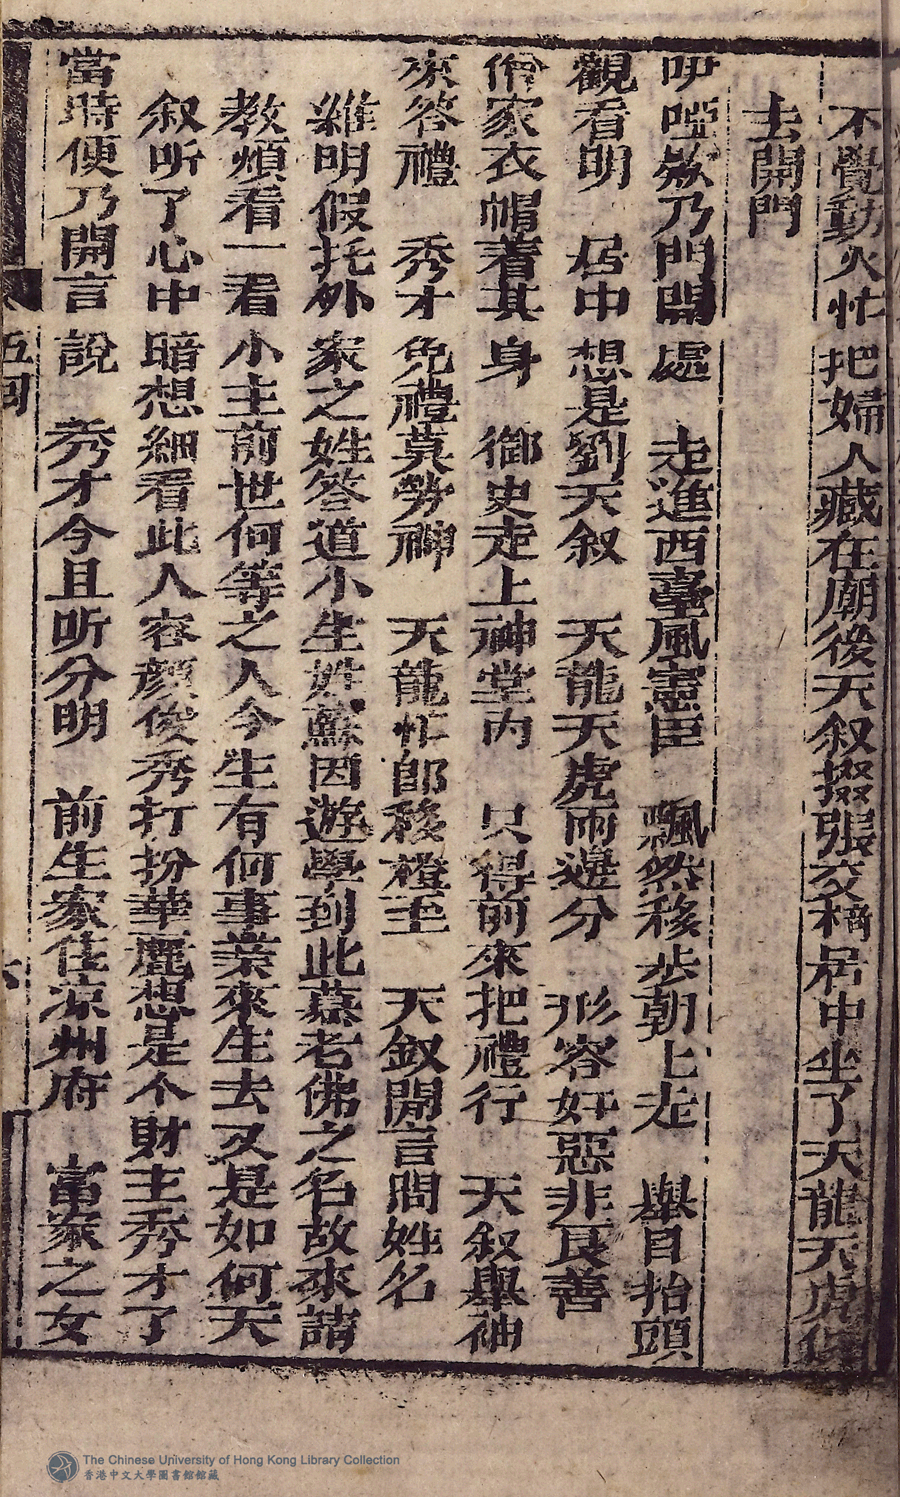 不覺動火忙把婦人藏在廟後天叙掇張交椅居中坐了天龍天虎
去開門
咿啞歘乃門開處　走進西臺風憲臣　飄然移步朝上走　舉目抬頭
觀看明　居中想是劉天叙　天龍天虎兩邊分　形容奸惡非良善
僧家衣帽着其身　御史走上神堂内　只得前來把禮行　天叙舉袖
來答禮　秀才免禮莫勞神　天龍忙郎移橙坐　天叙開言問姓名
維明假托外家之姓答道小生姓蘇因遊學到此慕老佛之名故來請
教煩看一看小主前世何等之人今生有何事業來生去又是如何天
叙听了心中暗想細看此人容顔俊秀打扮華麗想是个財主秀才了
當時便乃開言說　秀才今且听分明　前生家住凉州府　富家之女
五回
六
The Chinese University of Hong Kong Library Collection
香港中文大學圖書館館藏